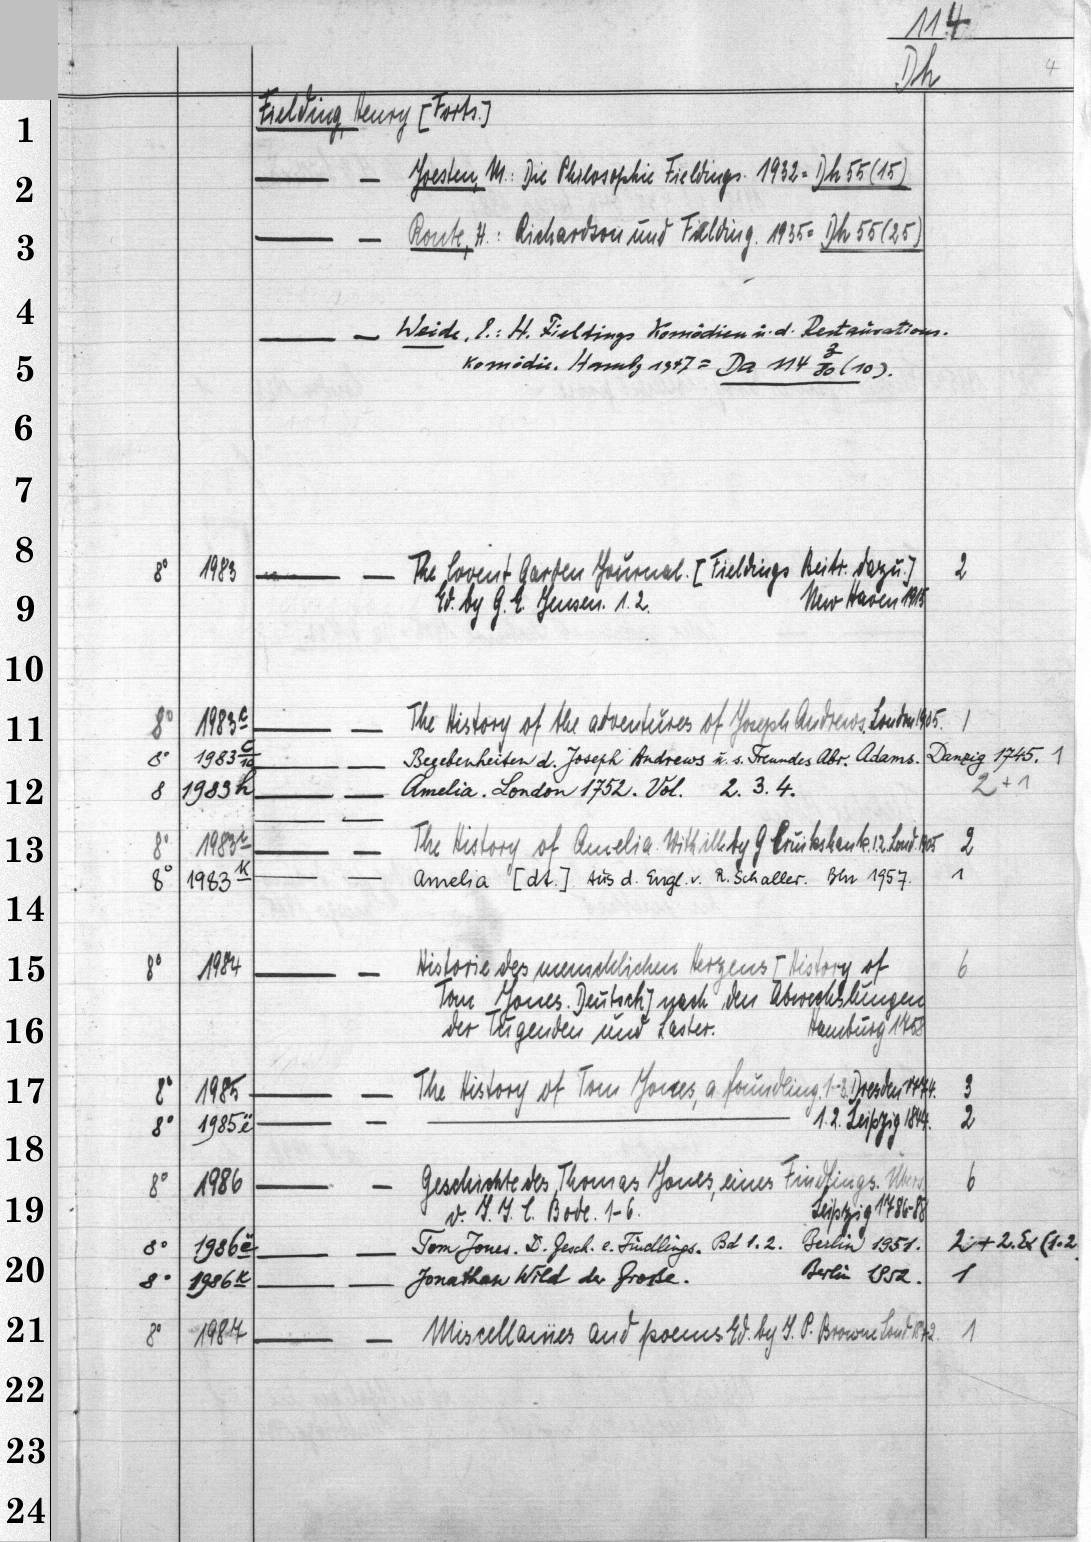 114
Dh
4
1 Fielding, Henry [Forts.]
2 — — Joesten, M.: Die Philosophie Fieldings. 1932 = Dh 55 (15)
3 — — Route, H.: Richardson und Fielding. 1935 = Dh 55 (25)
4 — — Weide, E.: H. Fieldings Komödien u. d. Restaurations-
5 komödie. Hambg 1947 = Da 114 (10).
6
7
8 8° 1983 — — The Covent Garden Journal. [Fieldings Beitr. dazu.] 2
9 Ed. by G. E. Jensen. 1.2. New Haven 1915
10
11 8° 1983 e — — The History of the adventures of Joseph Andrews. London 1905. 1
8° 1983 e/10 — — Begebenheiten d. Joseph Andrews u. s. Freundes Abr. Adams. Danzig 1745. 1
12 8 1983 h — — Amelia. London 1752. Vol. 2. 3. 4. 2 + 1
— —
13 8° 1983 i — — The History of Amelia. With ill. by G Cruikshank. 1.2. Lond. 1905 2
8° 1983 k — — Amelia [dt.] Aus d. Engl. v. R. Schaller. Bln 1957. 1
14
15 8° 1984 — — Historie des menschlichen Herzens [History of 6
Tom Jones. Deutsch] nach den Abwechslungen
16 der Tugenden und Laster. Hamburg 1758
17 8° 1985 — — The History of Tom Jones, a foundling. 1-3. Dresden 1774. 3
8° 1985 ë — — — 1.2. Leipzig 1844. 2
18 8° 1986 — — Geschichte des Thomas Jones, eines Findlings. Übers. 6
19 v. J. J. C. Bode. 1-6. Leipzig 1786-88
8° 1986 ë — — Tom Jones. D. Gesch. e. Findlings. Bd 1.2. Berlin 1951. 2 + 2. Ex (1.2
20 8° 1986 k — — Jonathan Wild der Große. Berlin 1952. 1
21 8° 1987 — — Miscellanies and poems Ed. by J. P. Browne Lond. 1872. 1
22
23
24